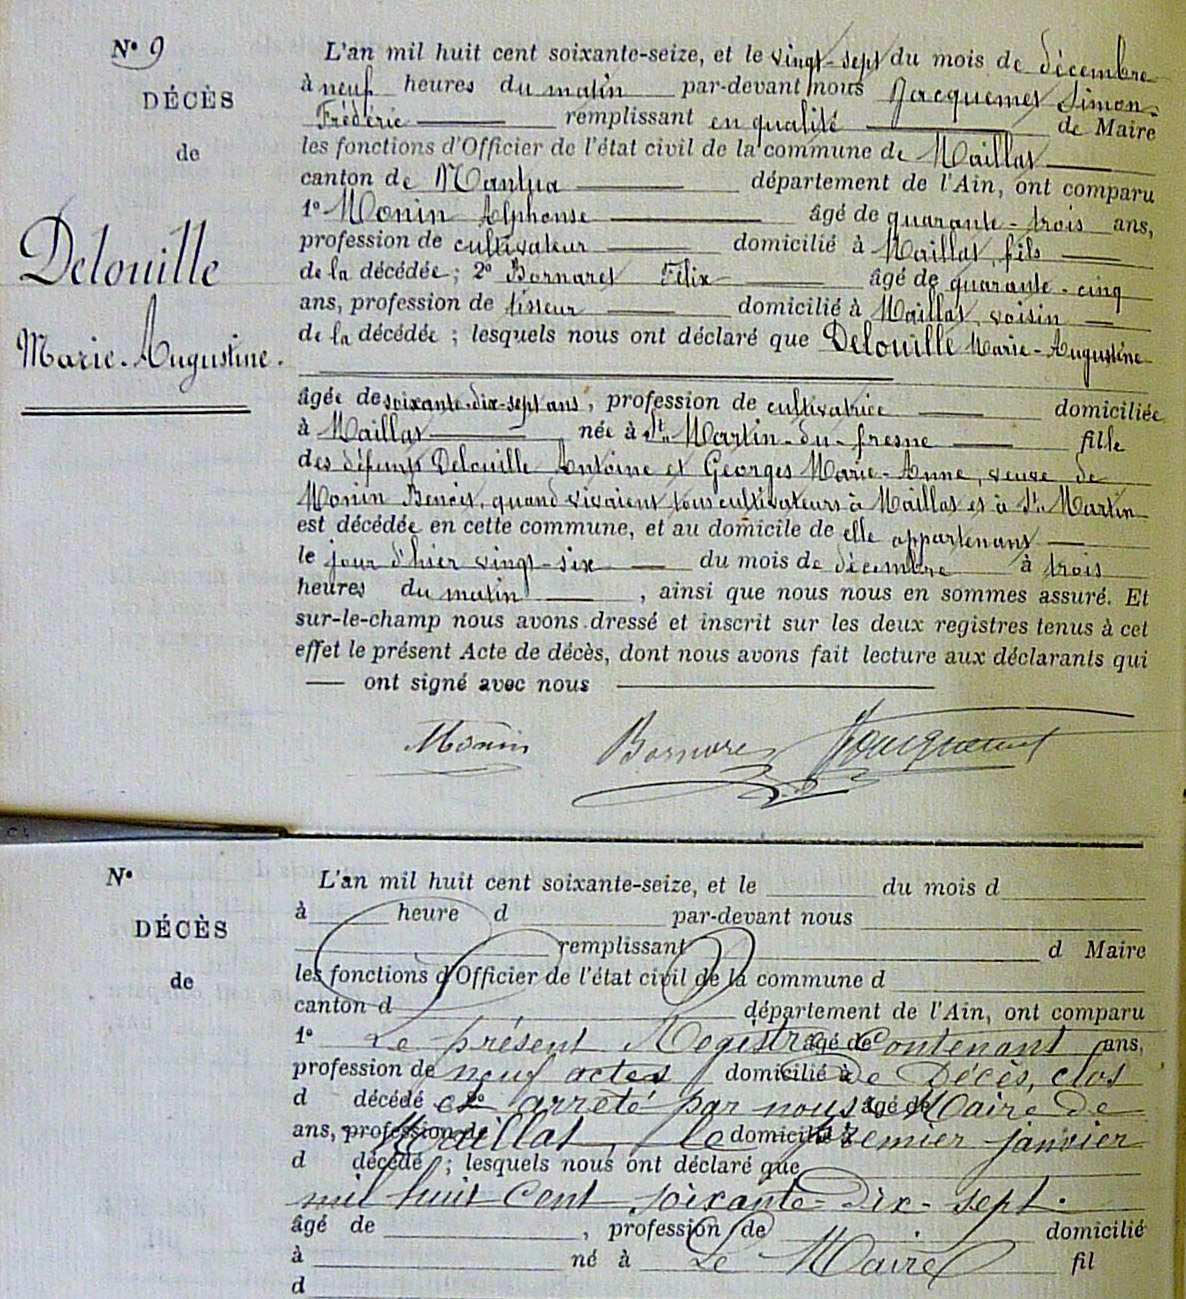 N° 9
DÉCÈS
de
Delouille
Marie-Augustine.
L'an mil huit cent soixante-seize, et le vingt-sept du mois de décembre
à neuf heures du matin par-devant nous Jacquemet Simon-
Frédéric remplissant en qualité de Maire
les fonctions d'Officier de l'état civil de la commune de Maillat
canton de Nantua département de l'Ain, ont comparu
1° Monin Alphonse âgé de quarante-trois ans,
profession de cultivateur domicilié à Maillat, fils
de la décédée ; 2° Bornaret Félix âgé de quarante-cinq
ans, profession de tisseur domicilié à Maillat, voisin
de la décédée ; lesquels nous ont déclaré que Delouille Marie-Augustine
âgée de soixante-dix-sept ans, profession de cultivatrice domiciliée
à Maillat née à St Martin-du-fresne fille
des défunts Delouille Antoine et Georges Marie-Anne, veuve de
Monin Benoit, quand vivaient tous cultivateurs à Maillat et à St Martin
est décédée en cette commune, et au domicile de elle appartenant
le jour d'hier vingt-six du mois de décembre à trois
heures du matin , ainsi que nous nous en sommes assuré. Et
sur-le-champ nous avons dressé et inscrit sur les deux registres tenus à cet
effet le présent Acte de décès, dont nous avons fait lecture aux déclarants qui
ont signé avec nous
Monin Bornaret Jacquemet
N°
DÉCÈS
de
L'an mil huit cent soixante-seize, et le du mois d
à heure d par-devant nous
remplissant d Maire
les fonctions d'Officier de l'état civil de la commune d
canton d département de l'Ain, ont comparu
1° Le présent Registre âgé de contenant ans,
profession de neuf actes domicilié à de Décès, clos
d décédé 2° et arrêté par nous âgé de Maire de
ans, profession de Maillat, le domicilié à premier janvier
d décédé ; lesquels nous ont déclaré que
mil huit cent soixante-dix-sept.
âgé de , profession de domicilié
à né à Le Maire fil
d